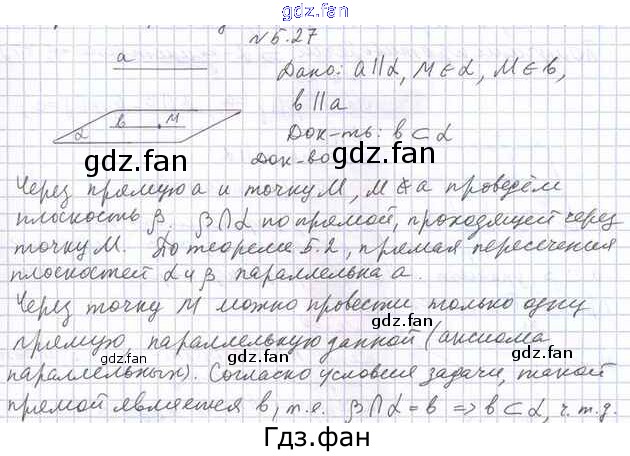 gdz.fan
N 5.27
a
Дано: a||α, M∈α, M∈b,
b||a
b M
α
Док-ть: b⊂α
gdz.fan gdz.fan
Док-во
Через прямую a и точку M, M∉a проведём
плоскость β. β∩α по прямой, проходящей через
точку M. По теореме 5.2, прямая пересечения
плоскостей α и β параллельна a.
Через точку M можно провести только одну
прямую, параллельную данной (аксиома
gdz.fan gdz.fan
параллельных). Согласно условия задачи, такой
прямой является b, т.е. β∩α = b => b⊂α, ч.т.д.
Гдз.фан